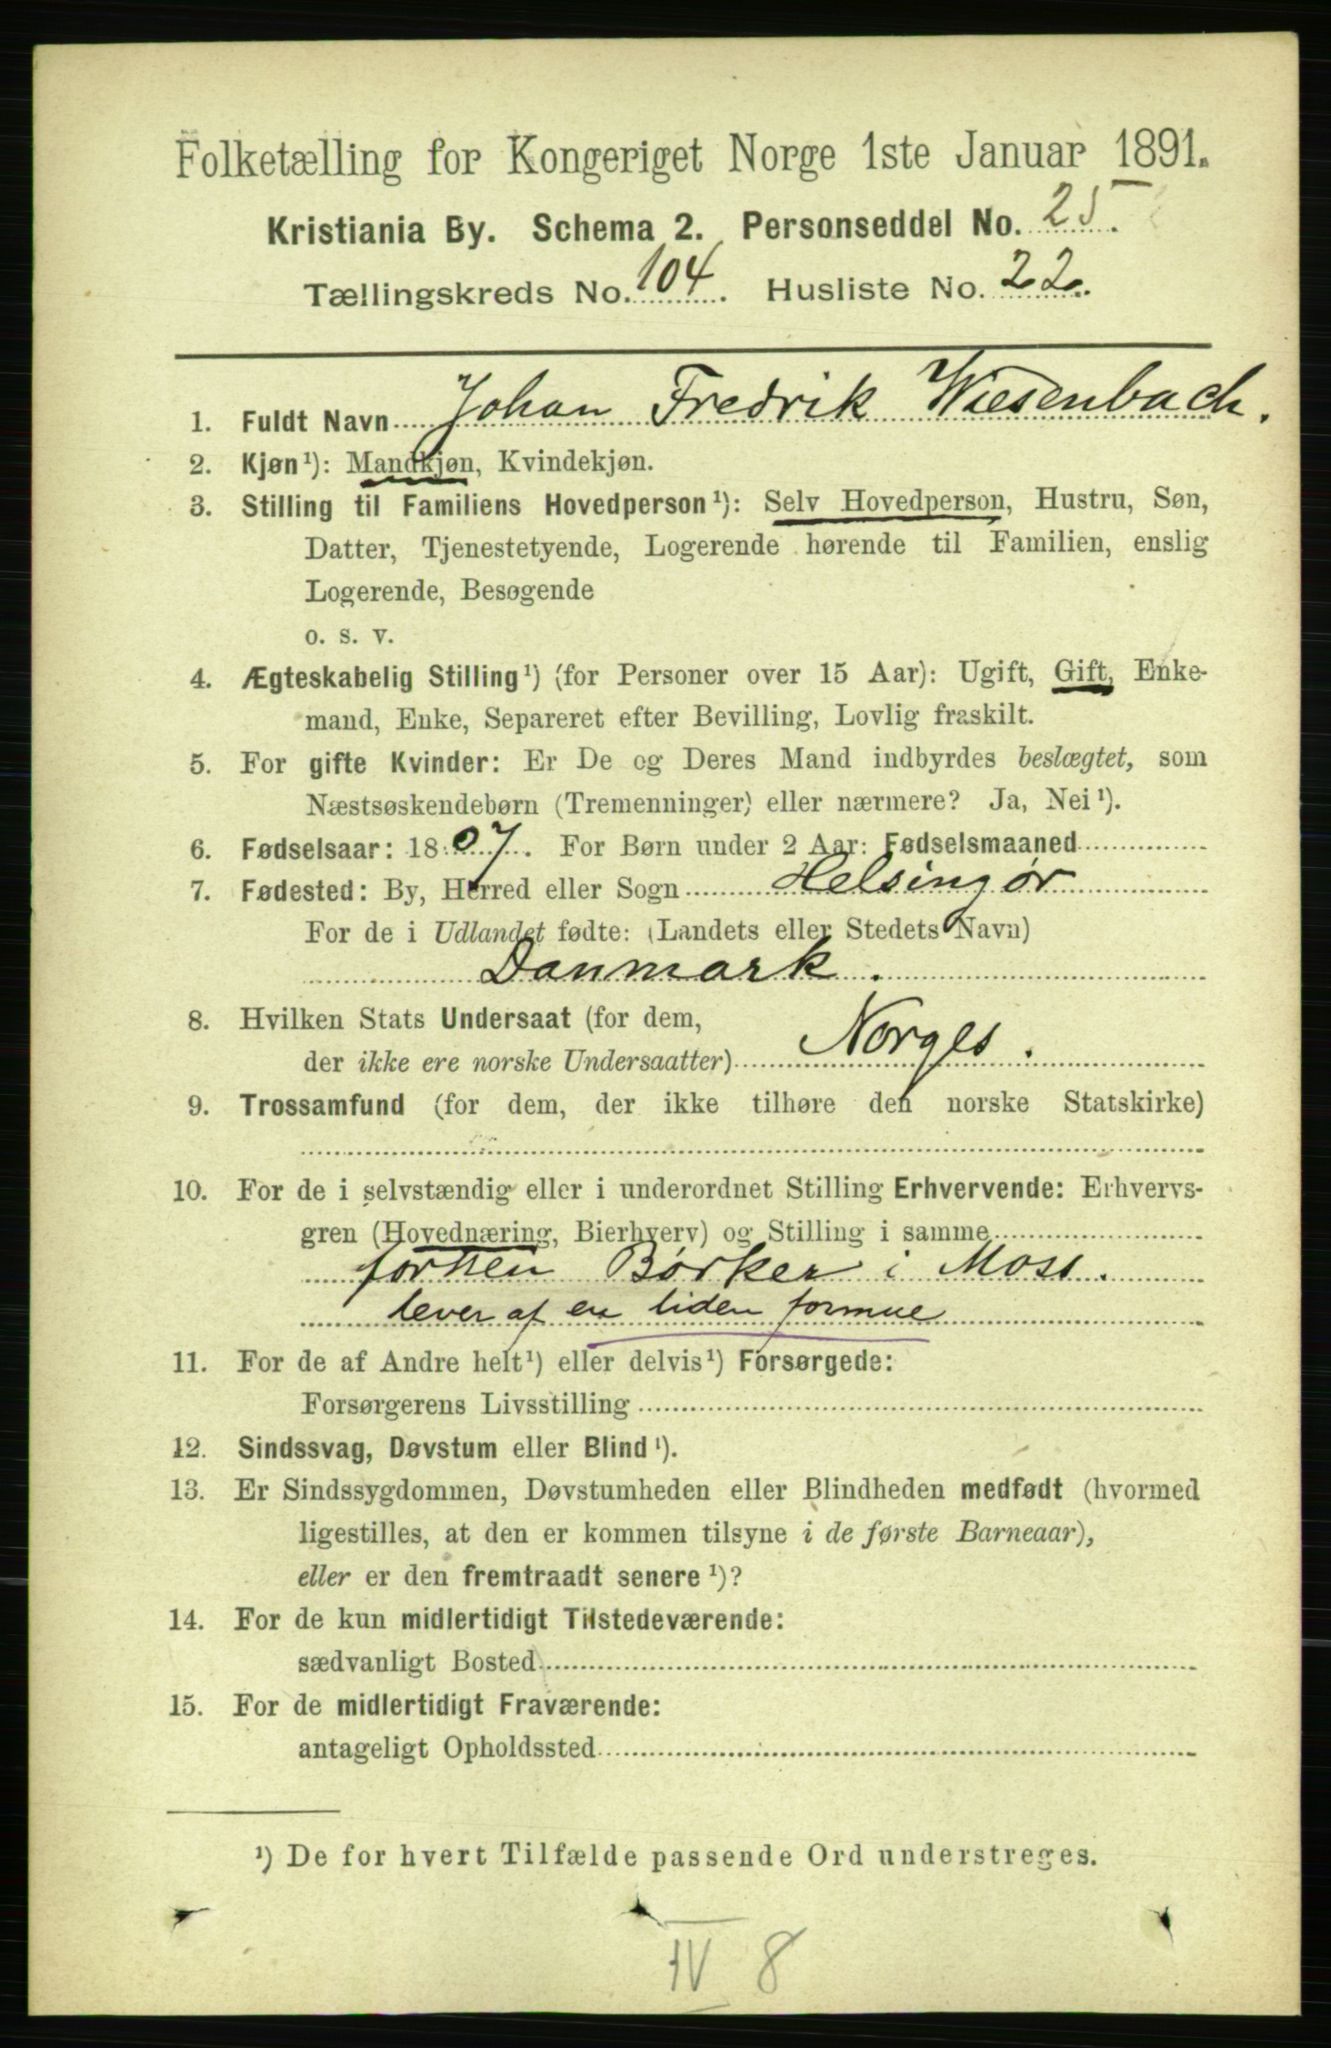 Folketælling for Kongeriget Norge 1ste Januar 1891.
Kristiania By. Schema 2. Personseddel No. 25.
Tællingskreds No. 104. Husliste No. 22.
1. Fuldt Navn Johan Fredrik Wiesenbach.
2. Kjøn¹): Mandkjøn, Kvindekjøn.
3. Stilling til Familiens Hovedperson¹): Selv Hovedperson, Hustru, Søn,
Datter, Tjenestetyende, Logerende hørende til Familien, enslig
Logerende, Besøgende
o. s. v.
4. Ægteskabelig Stilling¹) (for Personer over 15 Aar): Ugift, Gift, Enke-
mand, Enke, Separeret efter Bevilling, Lovlig fraskilt.
5. For gifte Kvinder: Er De og Deres Mand indbyrdes beslægtet, som
Næstsøskendebørn (Tremenninger) eller nærmere? Ja, Nei¹).
6. Fødselsaar: 1807. For Børn under 2 Aar: Fødselsmaaned
7. Fødested: By, Herred eller Sogn Helsingør
For de i Udlandet fødte: (Landets eller Stedets Navn)
Danmark.
8. Hvilken Stats Undersaat (for dem,
der ikke ere norske Undersaatter) Norges.
9. Trossamfund (for dem, der ikke tilhøre den norske Statskirke)
10. For de i selvstændig eller i underordnet Stilling Erhvervende: Erhvervs-
gren (Hovednæring, Bierhverv) og Stilling i samme
forhen Børker i Moss.
lever af en liden formue
11. For de af Andre helt¹) eller delvis¹) Forsørgede:
Forsørgerens Livsstilling
12. Sindssvag, Døvstum eller Blind¹).
13. Er Sindssygdommen, Døvstumheden eller Blindheden medfødt (hvormed
ligestilles, at den er kommen tilsyne i de første Barneaar),
eller er den fremtraadt senere¹)?
14. For de kun midlertidigt Tilstedeværende:
sædvanligt Bosted
15. For de midlertidigt Fraværende:
antageligt Opholdssted
¹) De for hvert Tilfælde passende Ord understreges.
IV 8